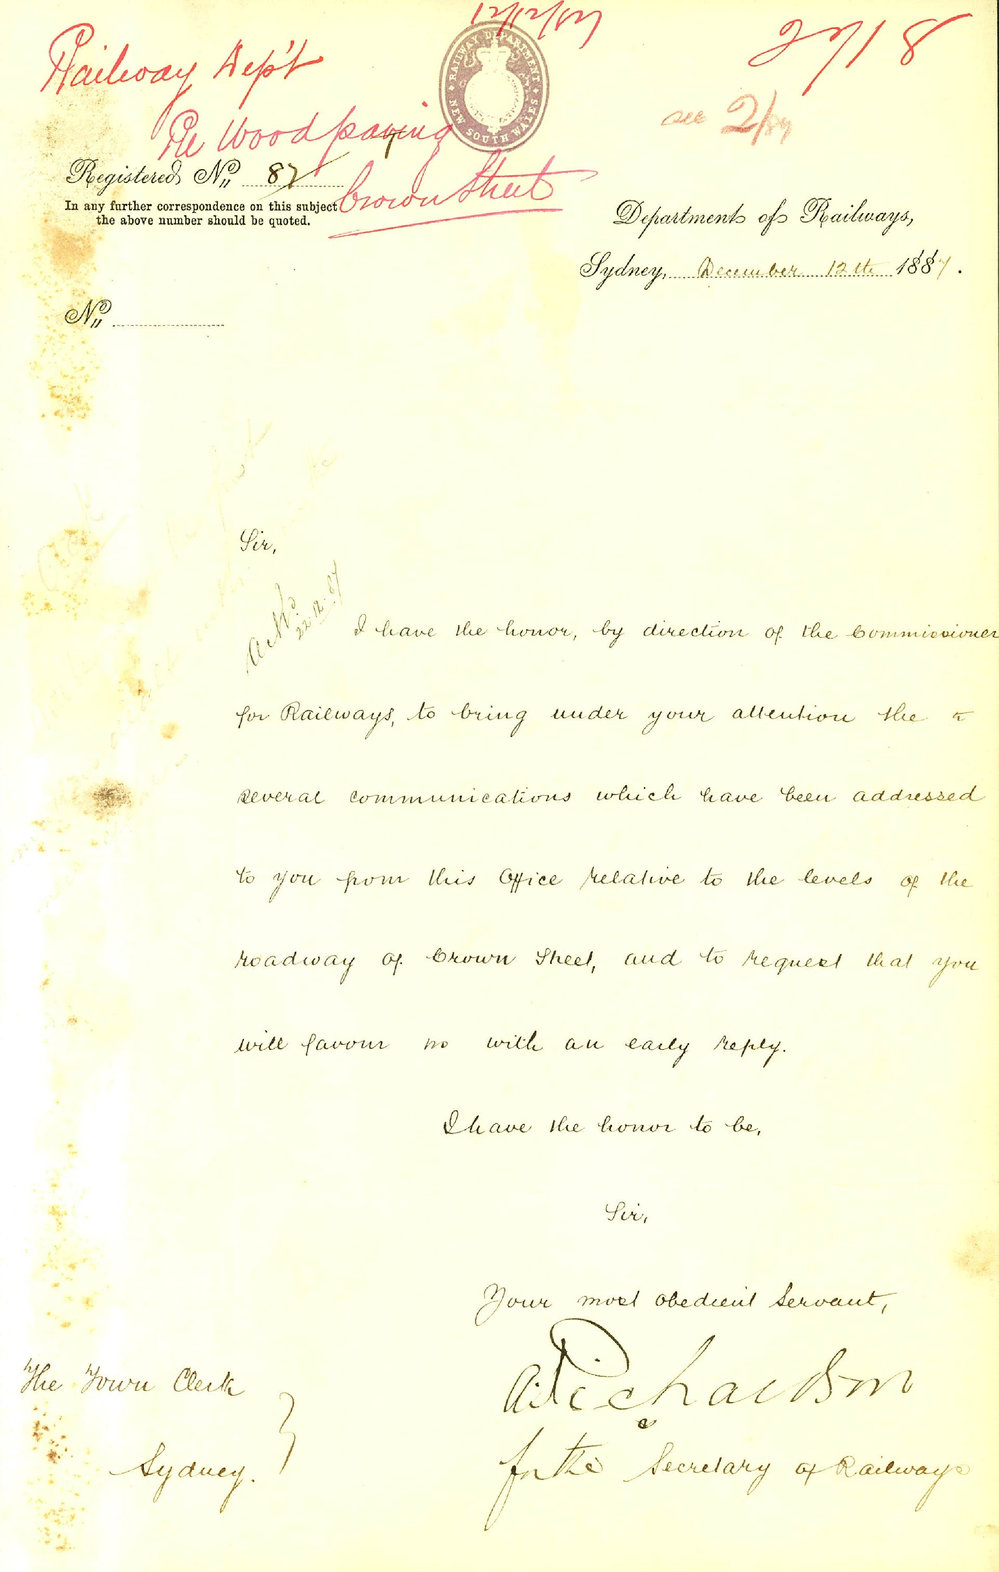 12/12/87
2718
Railway Dep't
see 2/89
Re Wood paving
Crown Street
RAILWAY DEPARTMENT
NEW SOUTH WALES
Registered No. 87
In any further correspondence on this subject
the above number should be quoted.
Department of Railways,
Sydney, December 12th 1887.
No.
Sir,
22.12.87
I have the honor, by direction of the Commissioner
for Railways, to bring under your attention the
several communications which have been addressed
to you from this Office relative to the levels of the
roadway of Crown Street, and to request that you
will favour me with an early reply.
I have the honor to be,
Sir,
Your most obedient Servant,
A. Richardson
for the Secretary of Railways
The Town Clerk
Sydney.